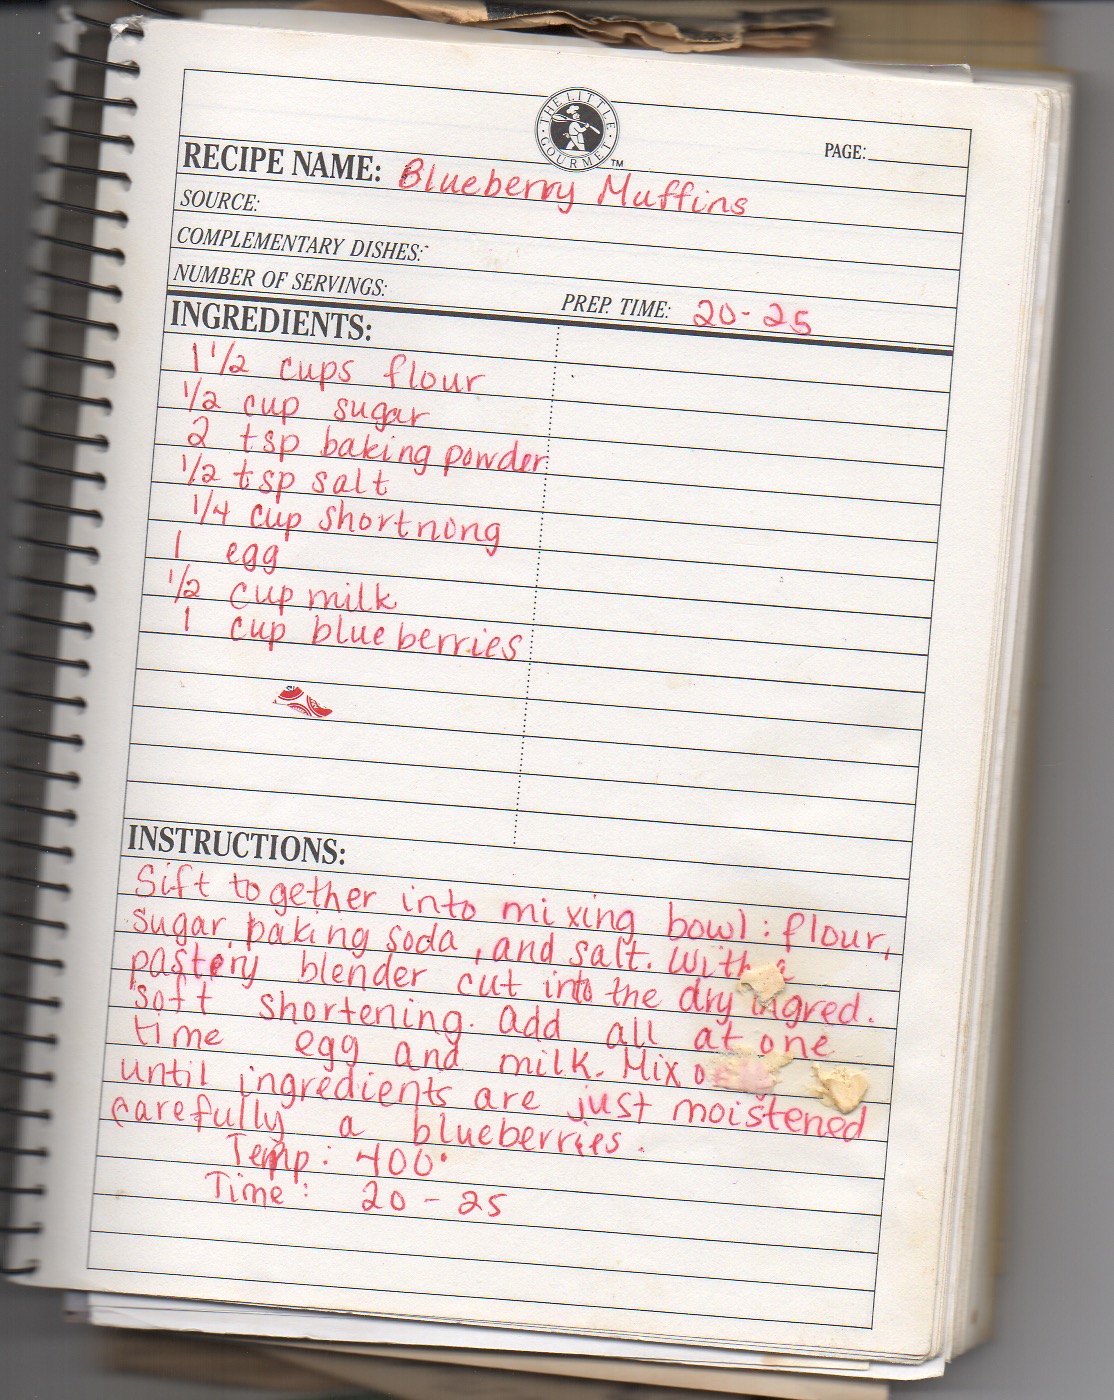 THE LITTLE GOURMET ™
PAGE:
RECIPE NAME: Blueberry Muffins
SOURCE:
COMPLEMENTARY DISHES:
NUMBER OF SERVINGS:
PREP. TIME: 20-25
INGREDIENTS:
1 1/2 cups flour
1/2 cup sugar
2 tsp baking powder
1/2 tsp salt
1/4 cup shortning
1 egg
1/2 cup milk
1 cup blueberries
INSTRUCTIONS:
Sift together into mixing bowl: flour,
sugar, baking soda, and salt. With a
pastery blender cut into the dry ingred.
soft shortening. add all at one
time egg and milk. Mix
until ingredients are just moistened
carefully a blueberries.
Temp: 400°
Time: 20-25